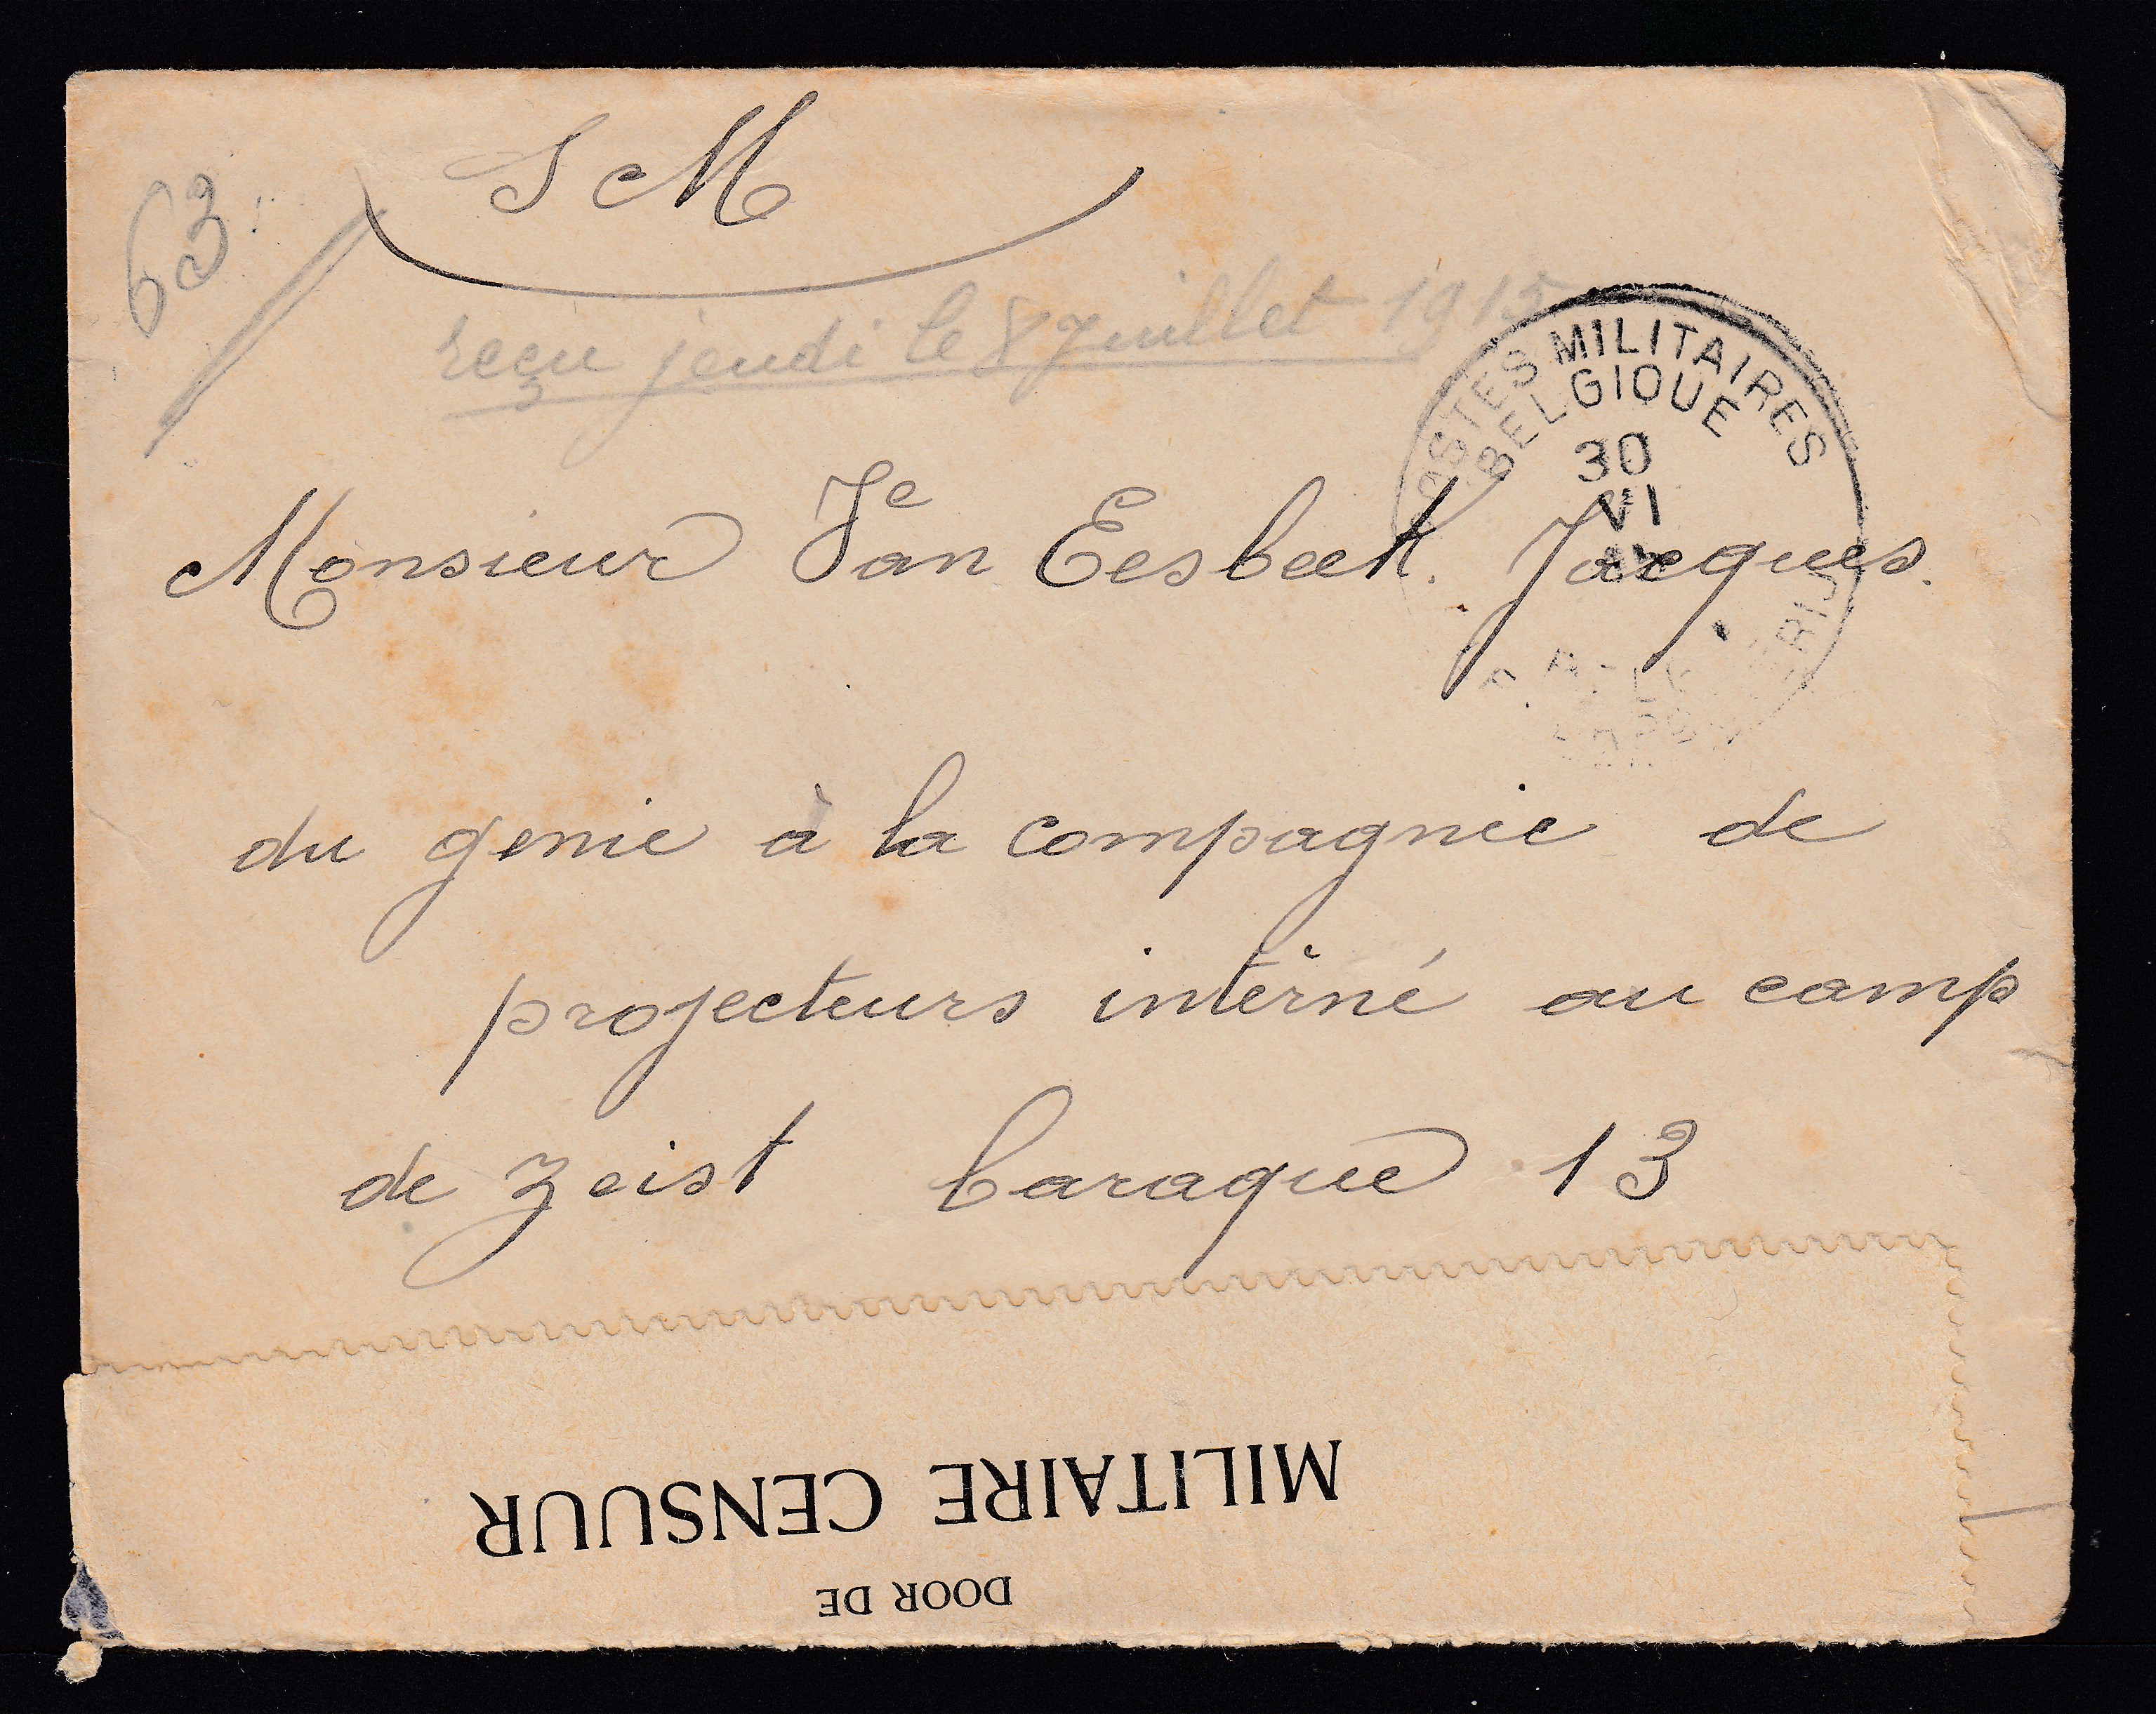 S M
63
reçu jeudi le 8 Juillet 1915
POSTES MILITAIRES
BELGIQUE
30
VI
Monsieur Van Eesbeek. Jacques.
du genie à la compagnie de
projecteurs intèrné au camp
de Zeist baraque 13
MILITAIRE CENSUUR
DOOR DE